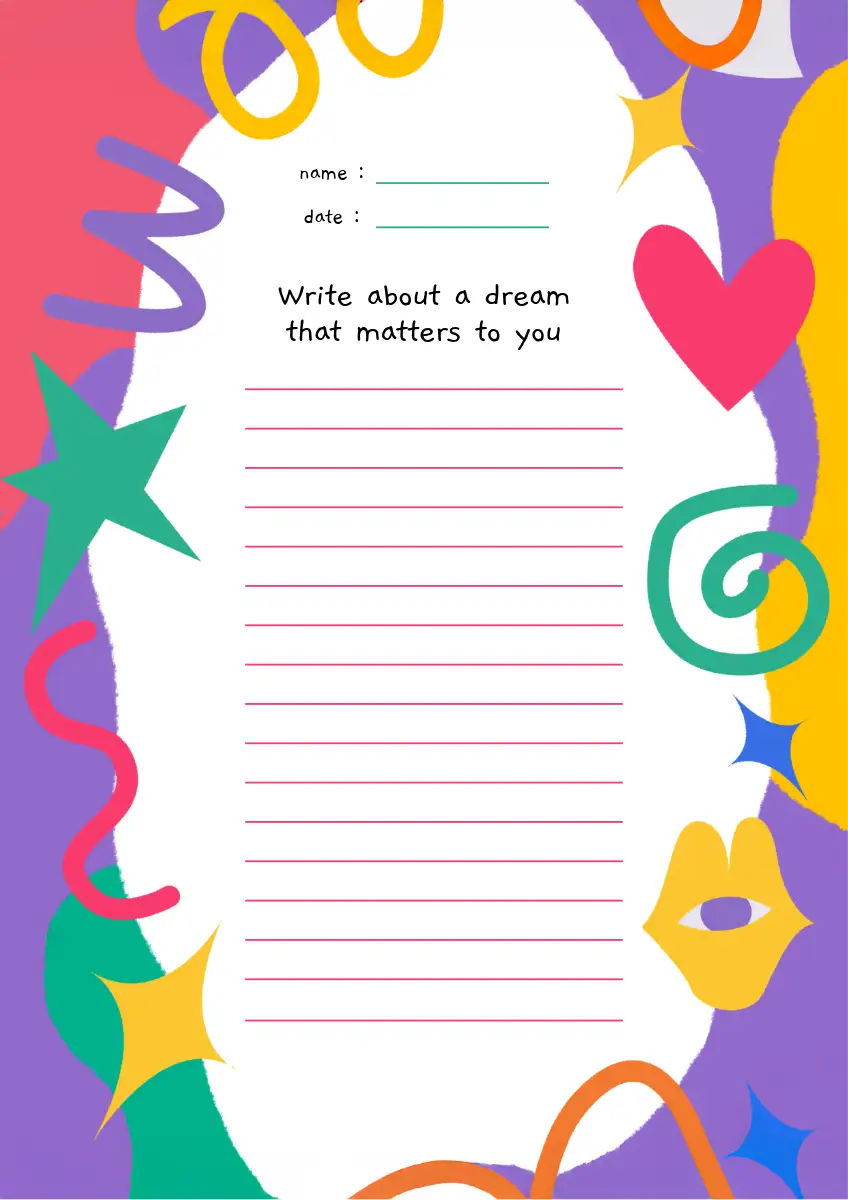 name :
date :
Write about a dream
that matters to you